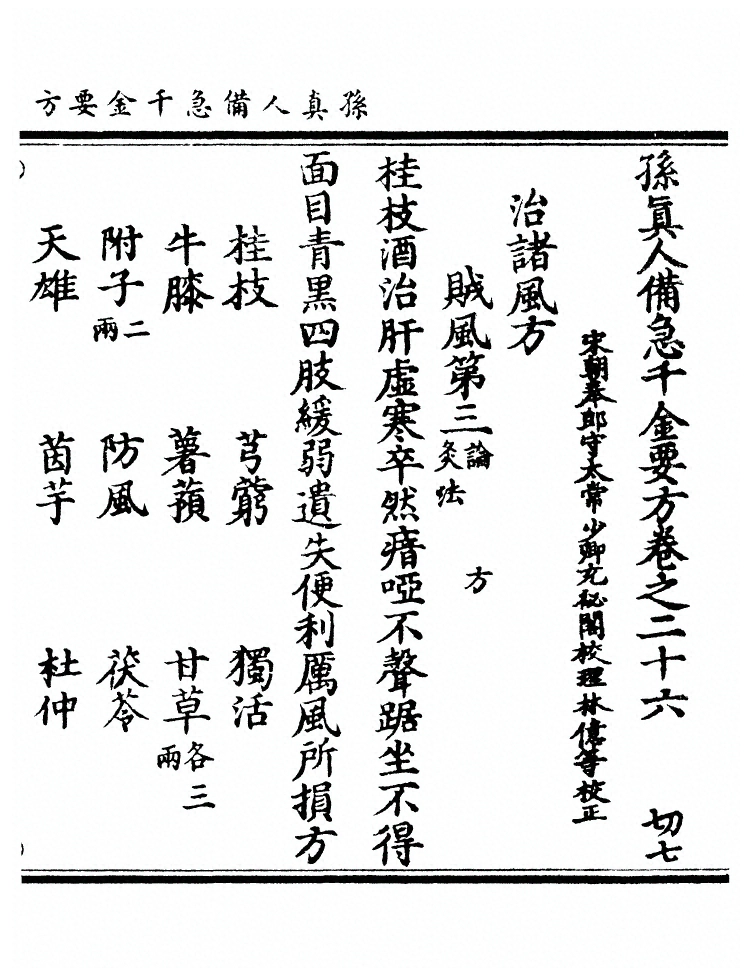 孫真人備急千金要方
孫眞人備急千金要方卷之二十六 切七
宋朝奉郎守太常少卿充秘閣校理林億等校正
治諸風方
賊風第三 論 方 灸法
桂枝酒治肝虛寒卒然瘖啞不聲踞坐不得
面目青黑四肢緩弱遺失便利厲風所損方
桂枝 芎藭 獨活
牛膝 薯蕷 甘草各三兩
附子二兩 防風 茯苓
天雄 茵芋 杜仲